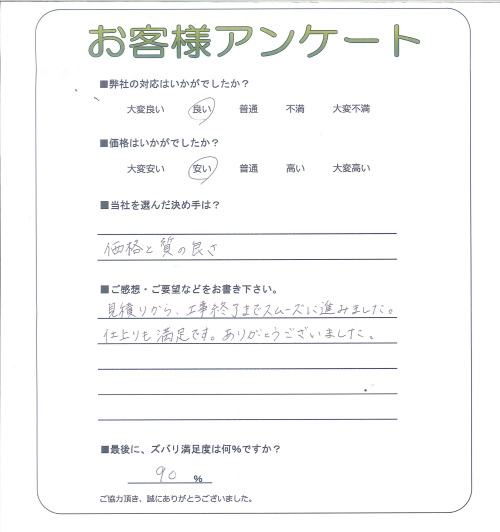 お客様アンケート
■弊社の対応はいかがでしたか？
大変良い 良い 普通 不満 大変不満
■価格はいかがでしたか？
大変安い 安い 普通 高い 大変高い
■当社を選んだ決め手は？
価格と質の良さ
■ご感想・ご要望などをお書き下さい。
見積りから、工事終了までスムーズに進みました。
仕上りも満足です。ありがとうございました。
■最後に、ズバリ満足度は何%ですか？
90 %
ご協力頂き、誠にありがとうございました。